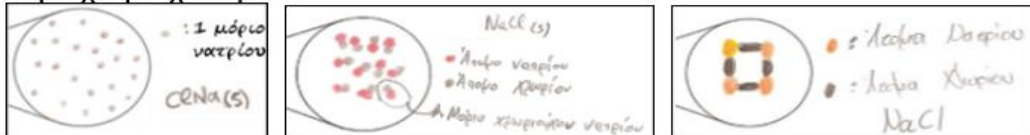 : 1 μόριο
νατρίου
ClNa(s)
NaCl(s)
• Άτομο νατρίου
• Άτομο χλωρίου
Μόριο χλωριούχου νατρίου
: Άτομα Νατρίου
: Άτομα Χλωρίου
NaCl